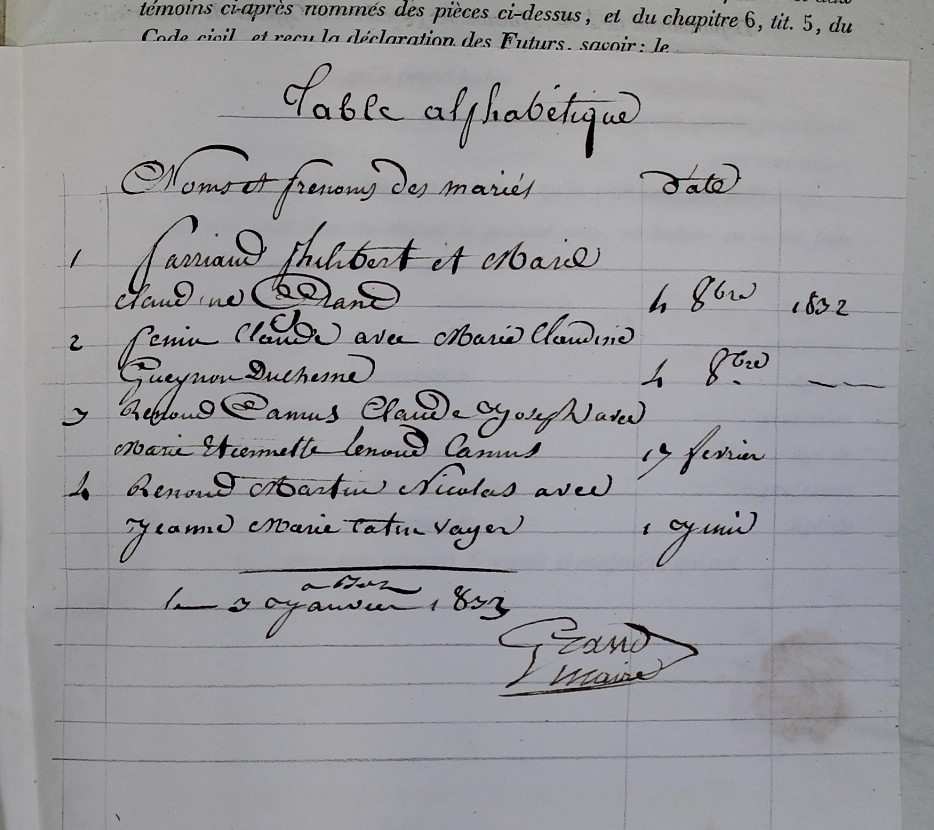 témoins ci-après nommés des pièces ci-dessus, et du chapitre 6, tit. 5, du
Code civil, et reçu la déclaration des Futurs, savoir: le
Table alphabétique
Noms et prenoms des mariés date
1 Parriaud philibert et Marie
claudine Grand 4 8bre 1832
2 Penin Claude avec Marie Claudine
Gueynon Duchesne 4 8bre
3 Renoud Camus Claude Joseph avec
Marie Etiennette Renoud Camus 17 fevrier
4 Renoud Martin Nicolas avec
Jeanne Marie Catin Vayer 1 Juin
a Boz
le 3 Janvier 1833
Grand
maire